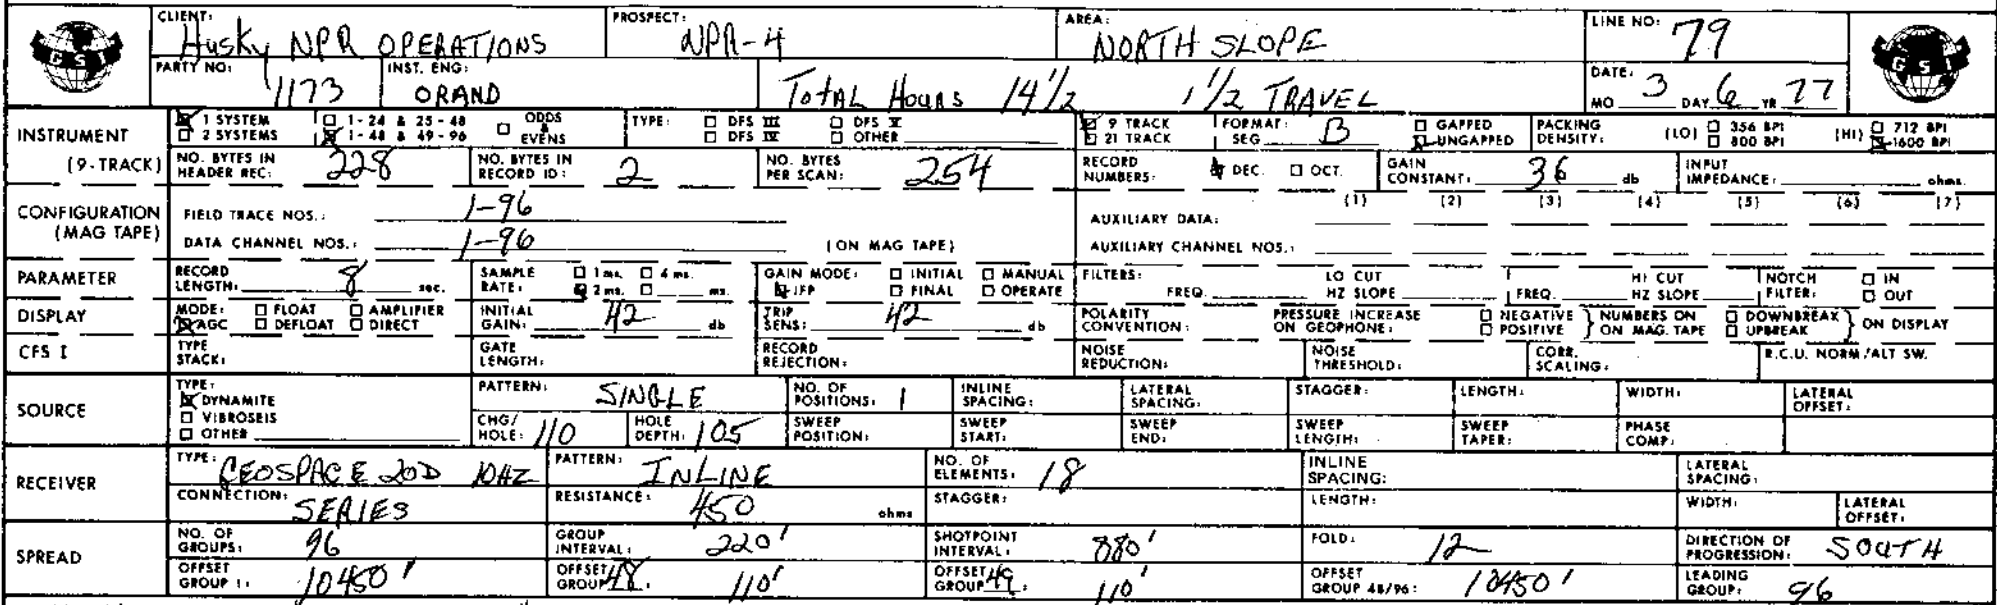 CLIENT: Husky NPR OPERATIONS PROSPECT: NPR-4 AREA: NORTH SLOPE LINE NO: 79
GSI GSI
PARTY NO: 1173 INST. ENG: ORAND Total Hours 14 1/2 1 1/2 TRAVEL DATE: MO 3 DAY 6 YR 77
INSTRUMENT 1 SYSTEM 1-24 & 25-48 ODDS & EVENS TYPE: DFS III DFS V 9 TRACK FORMAT: SEG B GAPPED PACKING DENSITY: (LO) 356 BPI (HI) 712 BPI
2 SYSTEMS 1-48 & 49-96 DFS IV OTHER 21 TRACK UNGAPPED 800 BPI 1600 BPI
(9-TRACK) NO. BYTES IN HEADER REC: 228 NO. BYTES IN RECORD ID: 2 NO. BYTES PER SCAN: 254 RECORD NUMBERS: DEC. OCT. GAIN CONSTANT: 36 db INPUT IMPEDANCE: ohms.
CONFIGURATION (MAG TAPE) FIELD TRACE NOS.: 1-96 AUXILIARY DATA: (1) (2) (3) (4) (5) (6) (7)
DATA CHANNEL NOS.: 1-96 (ON MAG TAPE) AUXILIARY CHANNEL NOS.:
PARAMETER RECORD LENGTH: 8 sec. SAMPLE RATE: 1 ms. 4 ms. 2 ms. ms. GAIN MODE: INITIAL MANUAL IFP FINAL OPERATE FILTERS: FREQ. LO CUT HZ SLOPE FREQ. HI CUT HZ SLOPE NOTCH FILTER: IN OUT
DISPLAY MODE: FLOAT AMPLIFIER AGC DEFLOAT DIRECT INITIAL GAIN: 42 db TRIP SENS: 42 db POLARITY CONVENTION: PRESSURE INCREASE ON GEOPHONE: NEGATIVE POSITIVE NUMBERS ON ON MAG. TAPE DOWNBREAK UPBREAK ON DISPLAY
CFS I TYPE STACK: GATE LENGTH: RECORD REJECTION: NOISE REDUCTION: NOISE THRESHOLD: CORR. SCALING: R.C.U. NORM/ALT SW.
SOURCE TYPE: DYNAMITE VIBROSEIS OTHER PATTERN: SINGLE NO. OF POSITIONS: 1 INLINE SPACING: LATERAL SPACING: STAGGER: LENGTH: WIDTH: LATERAL OFFSET:
CHG/HOLE: 110 HOLE DEPTH: 105 SWEEP POSITION: SWEEP START: SWEEP END: SWEEP LENGTH: SWEEP TAPER: PHASE COMP:
RECEIVER TYPE: GEOSPACE 20D 10HZ PATTERN: INLINE NO. OF ELEMENTS: 18 INLINE SPACING: LATERAL SPACING:
CONNECTION: SERIES RESISTANCE: 450 ohms STAGGER: LENGTH: WIDTH: LATERAL OFFSET:
SPREAD NO. OF GROUPS: 96 GROUP INTERVAL: 220' SHOTPOINT INTERVAL: 880' FOLD: 12 DIRECTION OF PROGRESSION: SOUTH
OFFSET GROUP 1: 10450' OFFSET GROUP 48: 110' OFFSET GROUP 49: 110' OFFSET GROUP 48/96: 10450' LEADING GROUP: 96